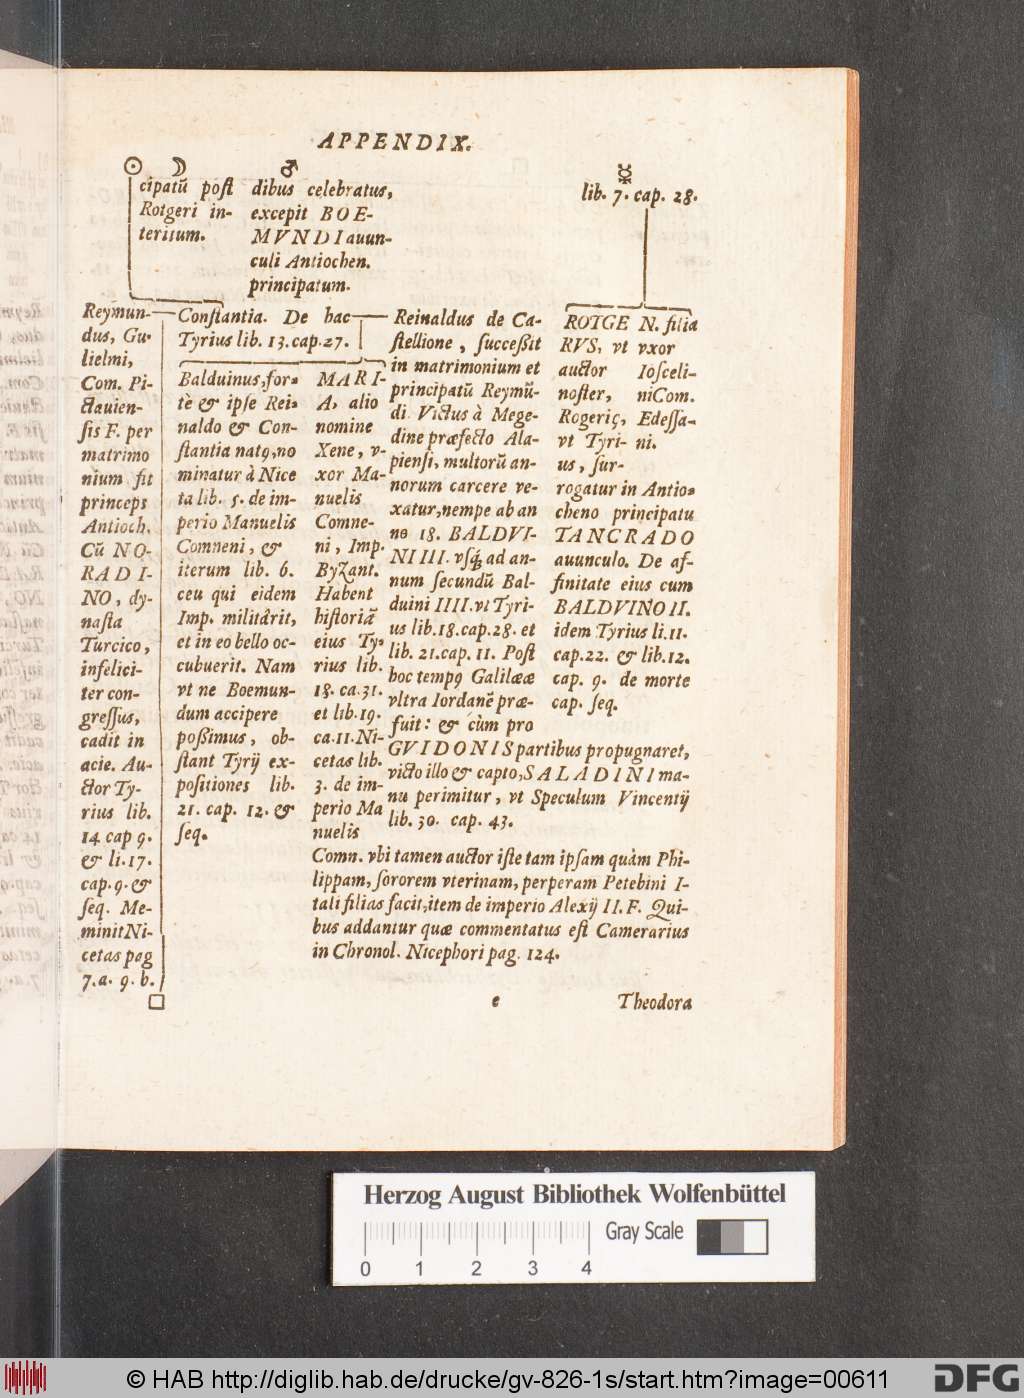 APPENDIX.
☉ ☽ ♂ ☿
cipatũ post
Rotgeri in-
teritum.
dibus celebratus,
excepit BOE-
MVNDI auun-
culi Antiochen.
principatum.
lib. 7. cap. 28.
Reymun-
dus, Gu-
lielmi,
Com. Pi-
ctauien-
sis F. per
matrimo
nium fit
princeps
Antioch.
Cũ NO-
RADI-
NO, dy-
nasta
Turcico,
infelici-
ter con-
gressus,
cadit in
acie. Au-
ctor Ty-
rius lib.
14 cap 9.
& li. 17.
cap. 9. &
seq. Me-
minit Ni-
cetas pag
7. a. 9. b.
Constantia. De hac
Tyrius lib. 13. cap. 27.
Balduinus, for-
tè & ipse Rei-
naldo & Con-
stantia natꝰ, no
minatur à Nice
ta lib. 5. de im-
perio Manuelis
Comneni, &
iterum lib. 6.
ceu qui eidem
Imp. militârit,
et in eo bello oc-
cubuerit. Nam
vt ne Boemun-
dum accipere
possimus, ob-
stant Tyrij ex-
positiones lib.
21. cap. 12. &
seq.
MARI-
A, alio
nomine
Xene, v-
xor Ma-
nuelis
Comne-
ni, Imp.
Byzant.
Habent
historiã
eius Ty-
rius lib.
18. ca. 31.
et lib. 19.
ca. 11. Ni-
cetas lib.
3. de im-
perio Ma
nuelis
Comn. vbi tamen auctor iste tam ipsam quàm Phi-
lippam, sororem vterinam, perperam Petebini I-
tali filias facit, item de imperio Alexij II. F. Qui-
bus addantur quæ commentatus est Camerarius
in Chronol. Nicephori pag. 124.
Reinaldus de Ca-
stellione, successit
in matrimonium et
principatũ Reymũ-
di. Victus à Mege-
dine præfecto Ala-
piensi, multorũ an-
norum carcere ve-
xatur, nempe ab an
no 18. BALDVI-
NI III. vsq́; ad an-
num secundũ Bal-
duini IIII. vt Tyri-
us lib. 18. cap. 28. et
lib. 21. cap. 11. Post
hoc tempꝰ Galilææ
vltra Iordanẽ præ-
fuit: & cùm pro
GVIDONIS partibus propugnaret,
victo illo & capto, SALADINI ma-
nu perimitur, vt Speculum Vincentij
lib. 30. cap. 43.
ROTGE
RVS, vt
auctor
noster,
Rogeriꝰ,
vt Tyri-
us, sur-
N. filia
vxor
Iosceli-
ni Com.
Edessa-
ni.
rogatur in Antio-
cheno principatu
TANCRADO
auunculo. De af-
finitate eius cum
BALDVINO II.
idem Tyrius li. 11.
cap. 22. & lib. 12.
cap. 9. de morte
cap. seq.
e
Theodora
Herzog August Bibliothek Wolfenbüttel
Gray Scale
0 1 2 3 4
© HAB http://diglib.hab.de/drucke/gv-826-1s/start.htm?image=00611
DFG